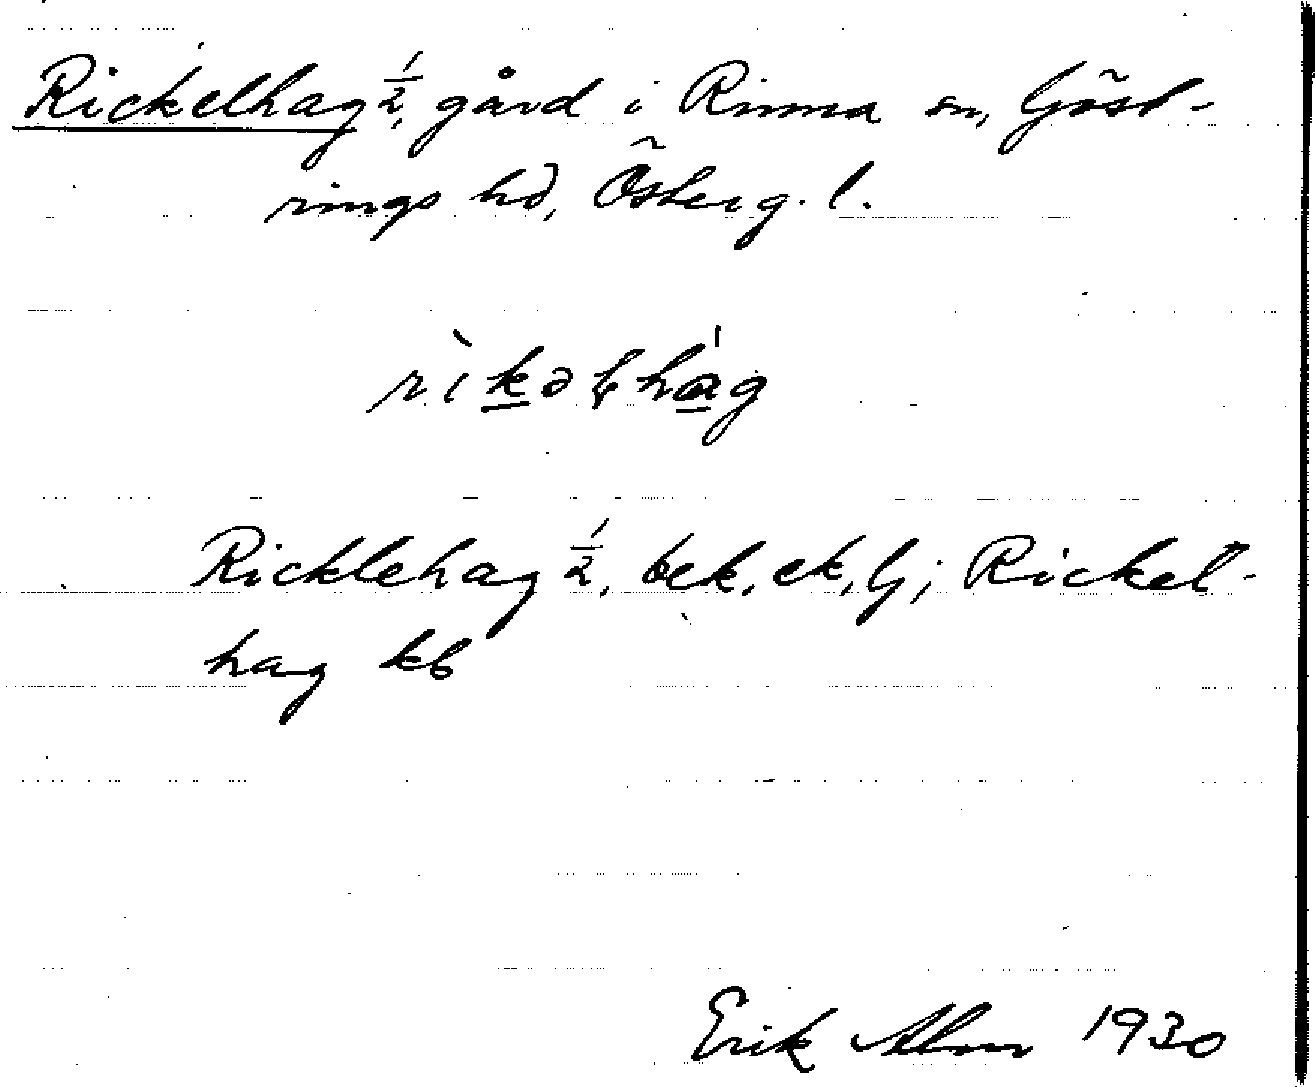 Rickelhag 1/2, gård i Rinna sn, Göst-
rings hd, Österg. l.
Ricklehag 1/2, bek, ek, G; Rickel-
hag kb
Erik Alm 1930